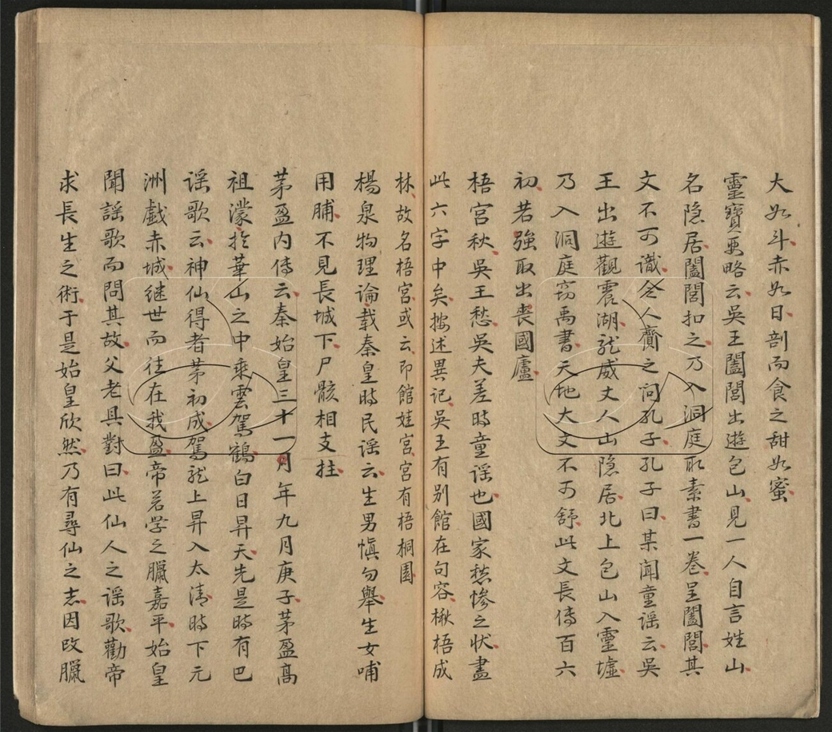 大如斗赤如日剖而食之甜如蜜
靈寶要略云吳王闔閭出遊包山見一人自言姓山
名隐居闔閭扣之乃入洞庭取素書一卷呈闔閭其
文不可識令人齎之问孔子孔子曰某闻童谣云吳
王出遊觀震湖龙威丈人山隐居北上包山入靈墟
乃入洞庭窃禹書天地大文不可舒此文長傳百六
初若強取出丧國廬
梧宫秋吳王愁吳夫差時童谣也國家愁惨之状盡
此六字中矣按述異记吳王有别館在句容楸梧成
林故名梧宫或云即館娃宫宫有梧桐園
楊泉物理論载秦皇時民谣云生男慎勿舉生女哺
用脯不見長城下尸骸相支拄
茅盈内傳云秦始皇三十一月年九月庚子茅盈高
祖濛於華山之中乘雲駕鶴白日昇天先是時有巴
谣歌云神仙得者茅初成駕龙上昇入太清時下元
洲戲赤城继世而往在我盈帝若学之臘嘉平始皇
聞謡歌而問其故父老具對曰此仙人之谣歌勸帝
求長生之術于是始皇欣然乃有尋仙之志因改臘